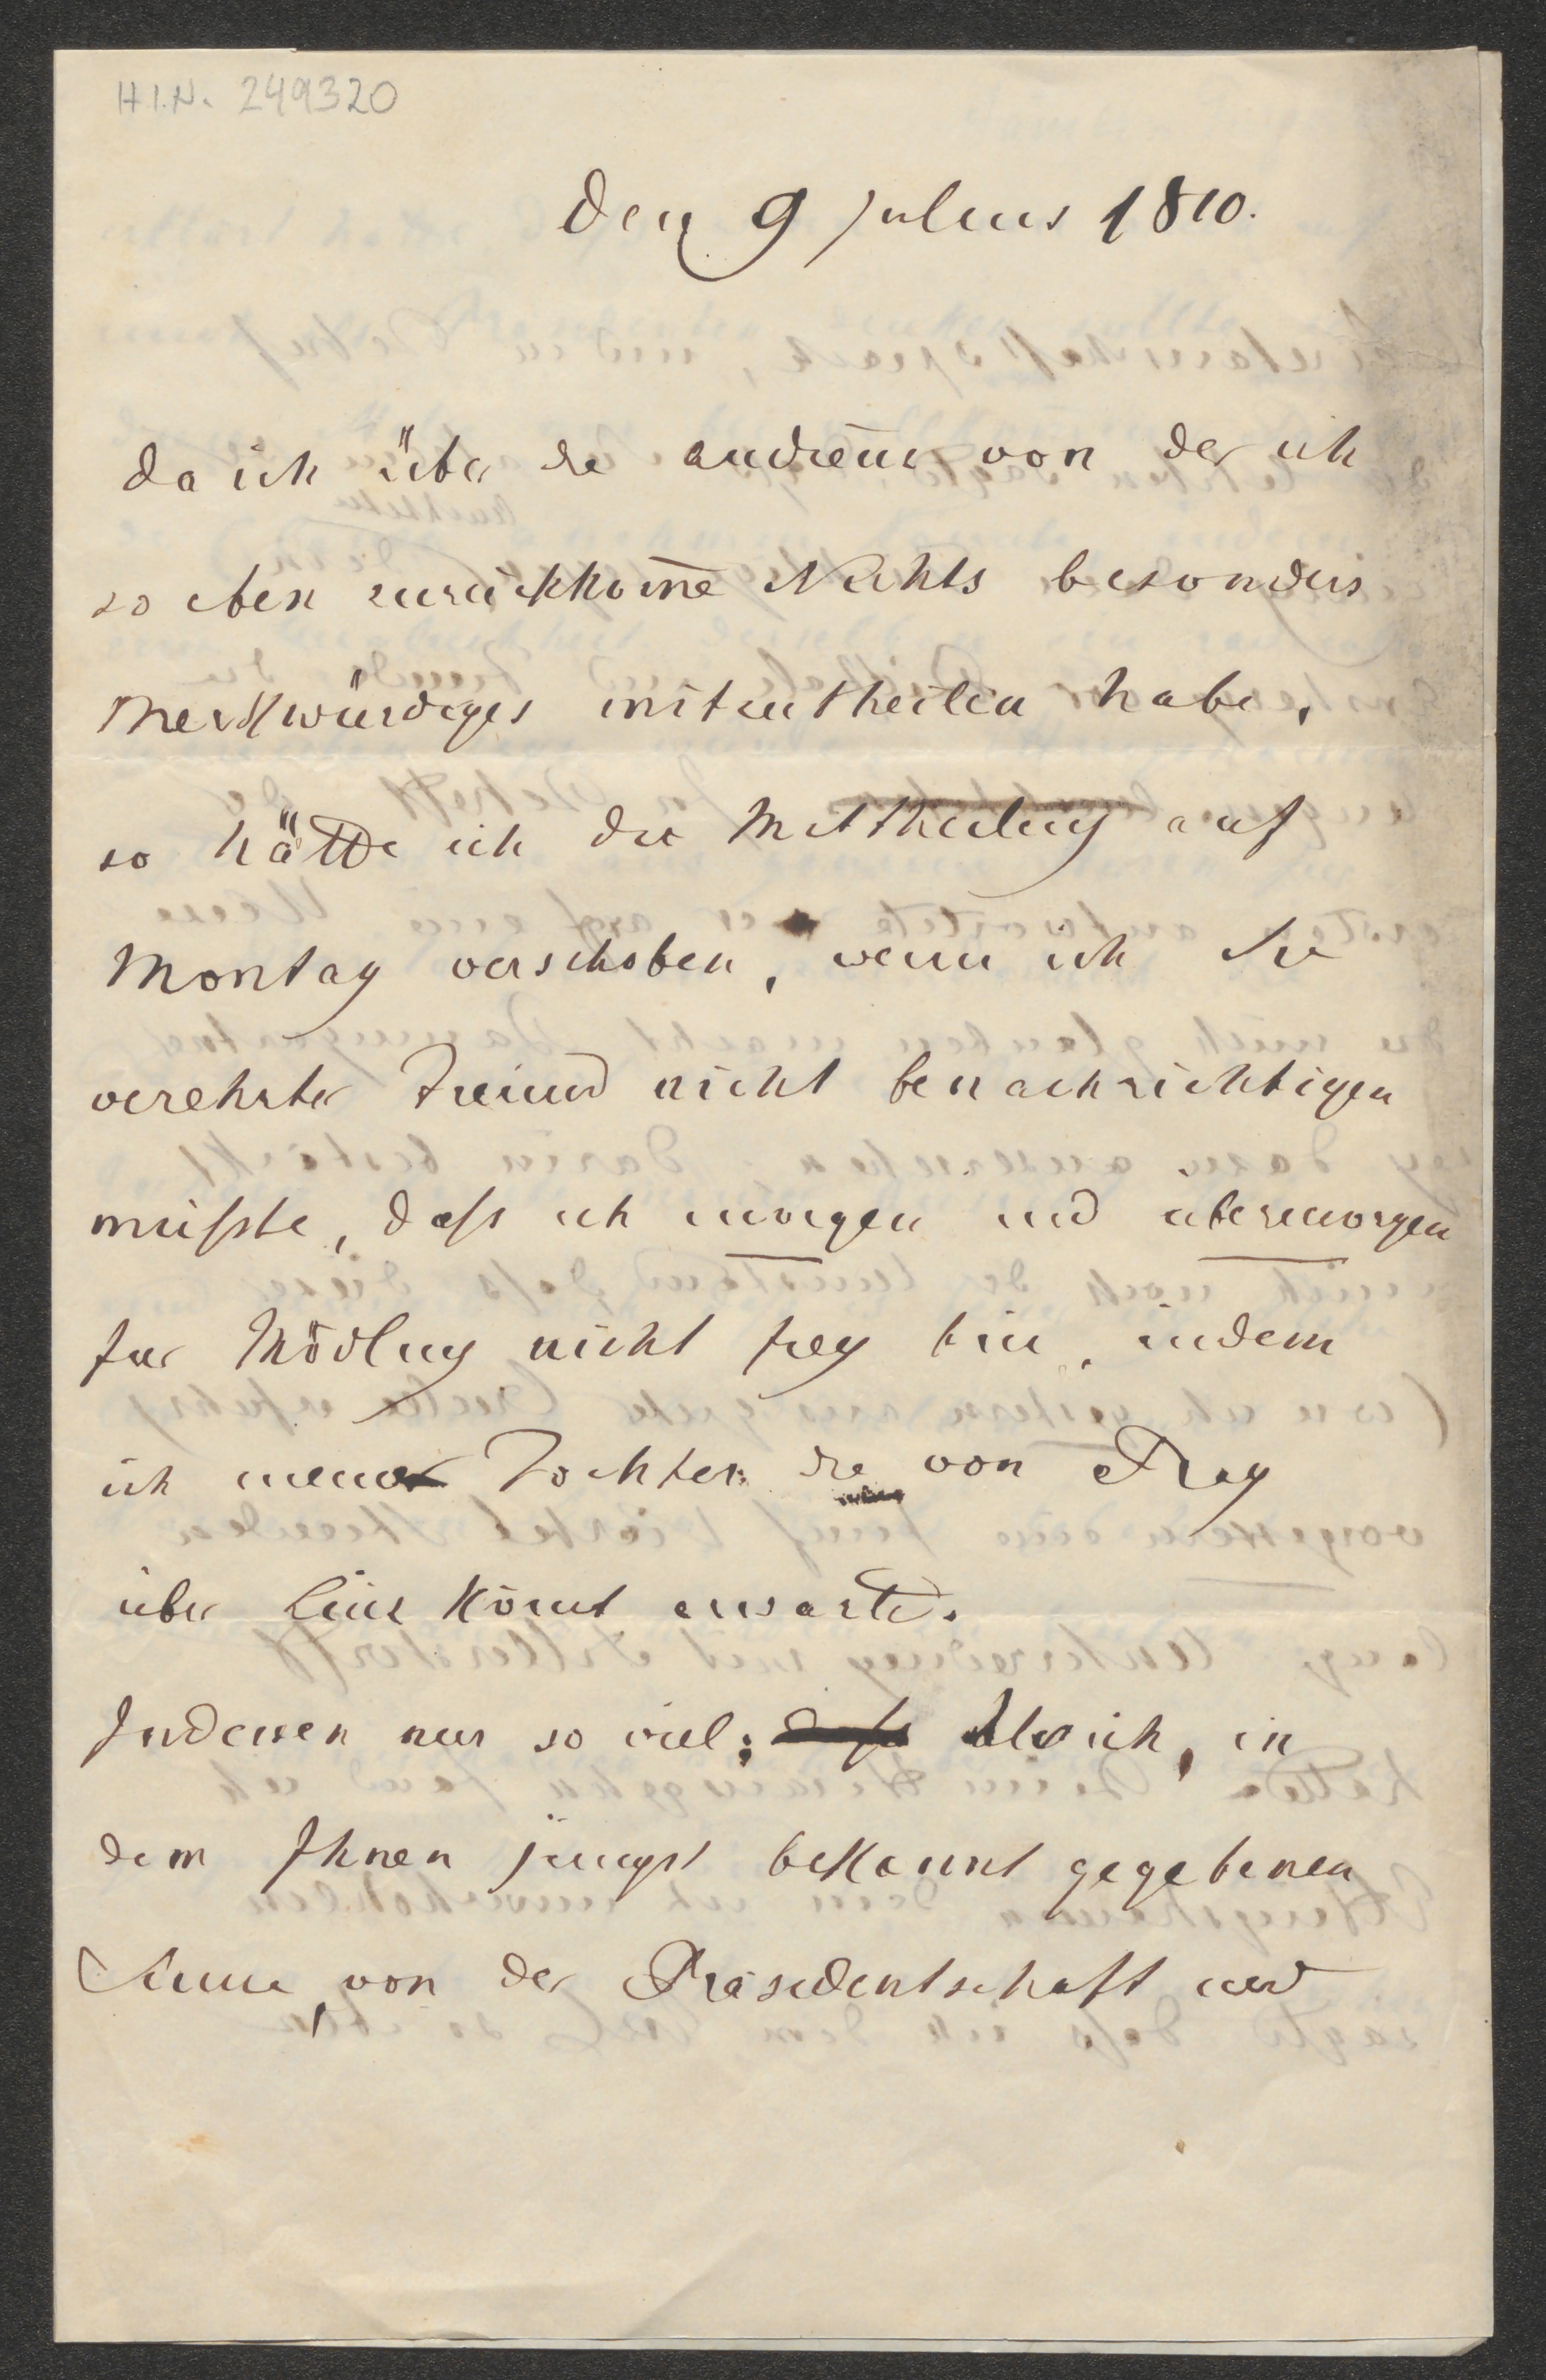 H.I.N. 249320
den 9 Julius 1810.
da ich über die audienz von der ich
so eben zurückkom̄e Nichts besonders
Merkwürdiges mitzutheilen habe,
so hätte ich die Mittheilung auf
Montag verschoben, wenn ich Sie
verehrter Freund nicht benachrichtigen
müßte, daß ich morgen und übermorgen
für Mödling nicht frey bin, indem
ich meine Tochter die von Prag
über Linz kom̄t erwarte.
Indessen nur so viel: daß Als ich, in
dem Ihnen jüngst bekannt gegebenen
Sinne von der Präsidentschaft und